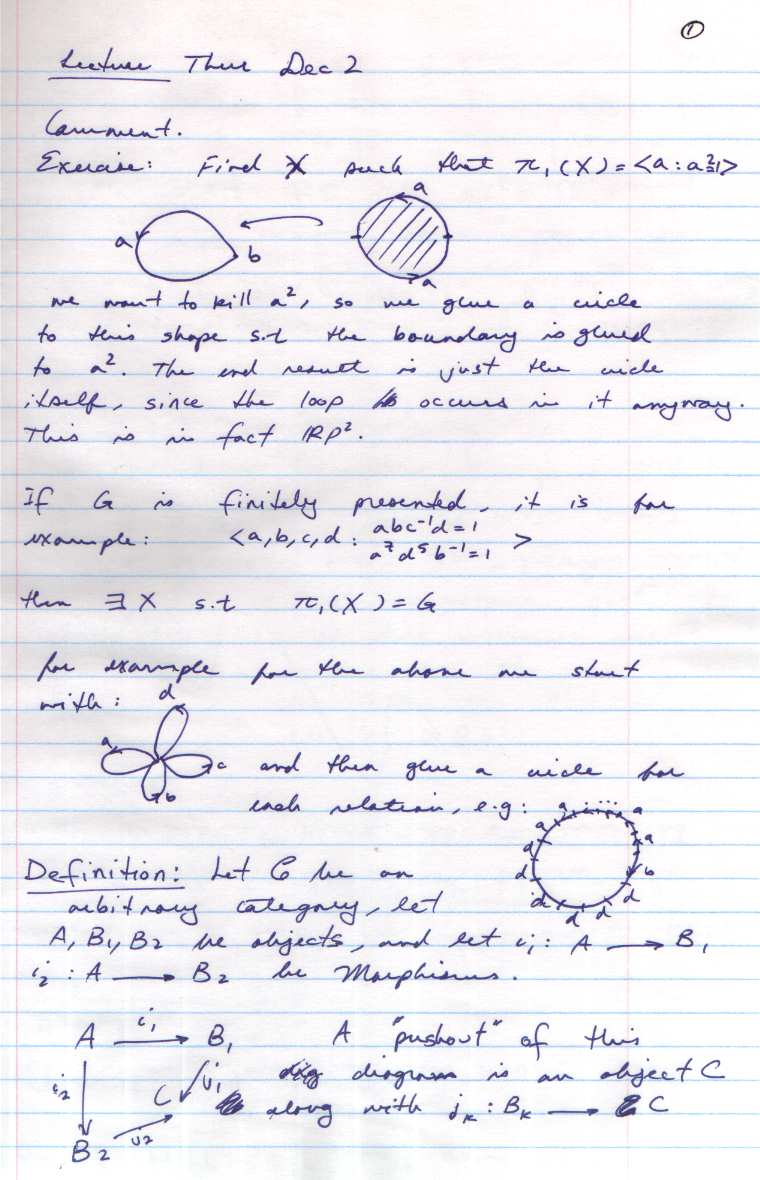 ①
Lecture Thur Dec 2
Comment.
Exercise: Find X such that π₁(X) = <a : a²=1>
a
a b
a
we want to kill a², so we glue a circle
to this shape s.t the boundary is glued
to a². The end result is just the circle
itself, since the loop occurs in it anyway.
This is in fact IRP².
If G is finitely presented, it is for
example: <a,b,c,d : abc⁻¹d=1
a⁷d⁵b⁻¹=1 >
then ∃ X s.t π₁(X) = G
for example for the above we start
with : d
a c and then glue a circle for
b each relation, e.g:
a ... a
a a
a b
d d
d d d
Definition: Let C be an
arbitrary category, let
A, B₁, B₂ be objects, and let i₁ : A → B₁
i₂ : A → B₂ be Morphisms.
A i₁ → B₁ A "pushout" of this
i₂ C j₁ diagram is an object C
along with jₖ : Bₖ → C
B₂ j₂